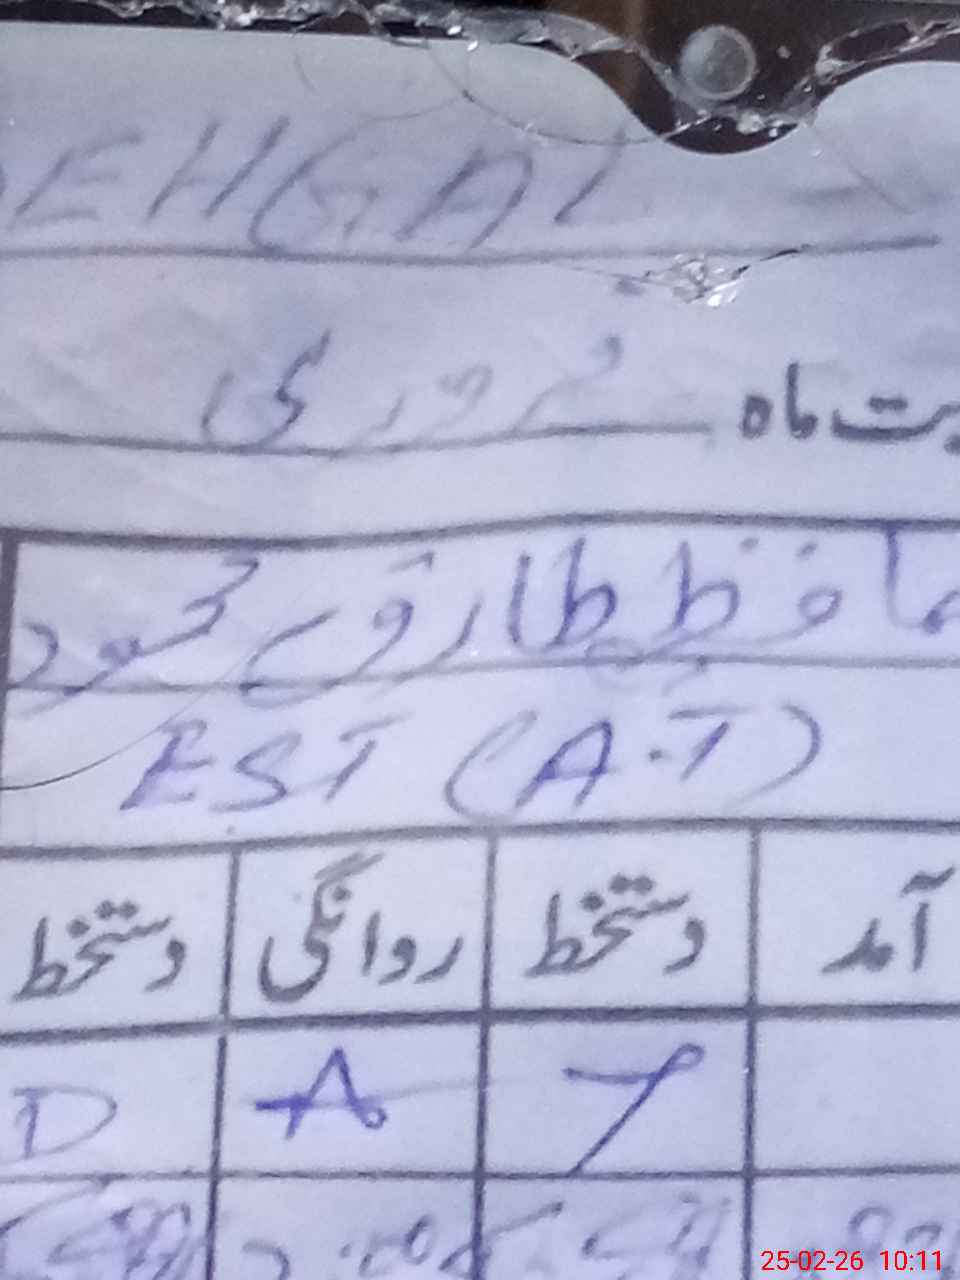 EHGAL
بت ماہ فروری
حافظ طارق محمود
EST (A.T)
آمد دستخط روانگی دستخط
Y A D
25-02-26 10:11